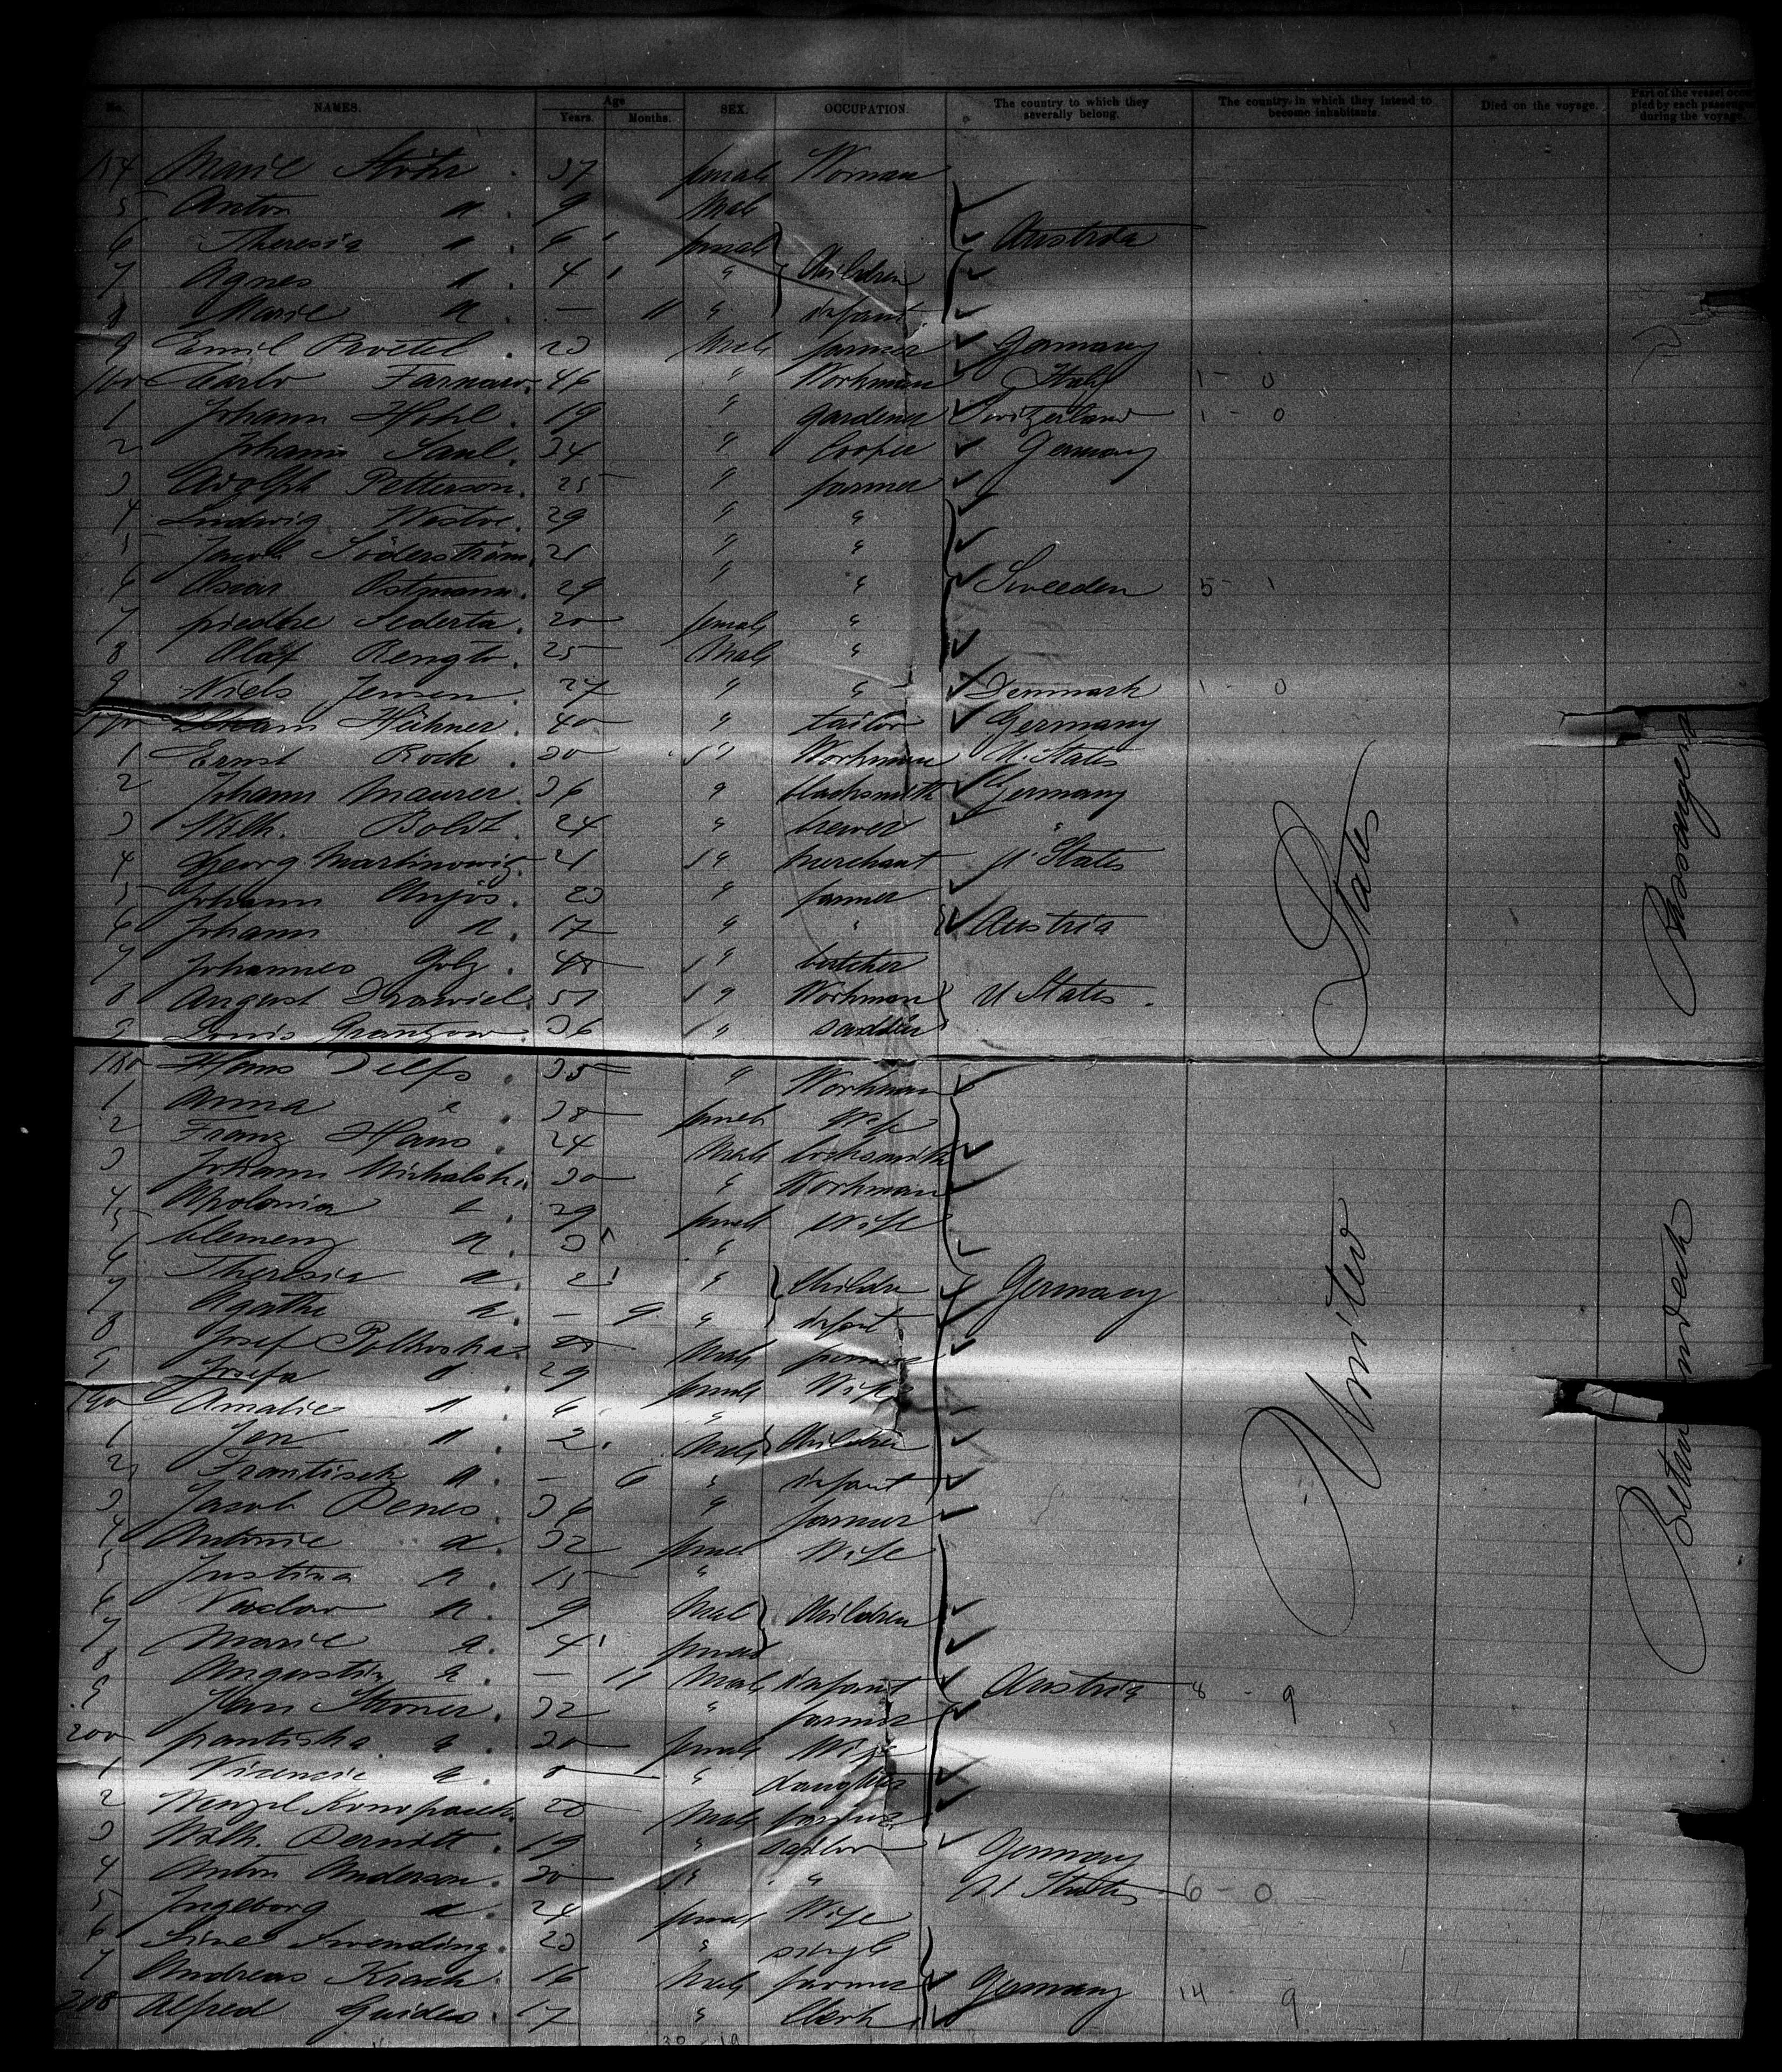 No. NAMES. Age Years. Months. SEX. OCCUPATION. The country to which they severally belong. The country, in which they intend to become inhabitants. Died on the voyage. Part of the vessel occupied by each passenger during the voyage.
154 Marie 37 female Woman
5 Anton " 9 Male
6 Theresia " 6 female Austria
7 Agnes " 4 " Children
8 Marie " — 11 " infant
9 Emil 23 Male farmer Germany
160 Carlo 46 " Workman Italy 1 - 0
1 Johann Hohl 19 " gardener Switzerland 1 - 0
2 Johann Saul 34 " Cooper Germany
3 Adolph Petterson 25 " farmer
4 Ludwig 29 " "
5 Jacob Söderström 21 " "
6 Oscar Ostmann 29 " " Sweeden 5 - 1
7 20 female "
8 Olaf 25 Male "
9 Niels Jensen 27 " " Denmark 1 - 0
170 Hühner 40 " tailor Germany
1 Ernst Rock 30 " Workman U. States
2 Johann Maurer 36 " blacksmith Germany
3 Wilh. Boldt 24 " brewer "
4 Georg Martinowig 21 " merchant U. States
5 Johann 23 " farmer
6 Johann " 17 " " Austria
7 Johannes Golz 48 " butcher
8 August 51 " Workman U States
9 Louis Grantzow 36 " saddler
180 Hans Delfs 35 " Workman
1 Anna " 38 female Wife
2 Franz Haus 24 Male locksmith
3 Johann Michalski 30 " Workman
4 Apolonia " 29 female Wife
5 Clemenz " 3 "
6 Theresia " 2 " Children Germany
7 Agathe " — 9 " infant
8 Josef Male farmer
9 Josefa " 29 female Wife
190 Amalie " 6 "
1 Jon " 2 Male Children
2 Frantisek " — 6 " infant
3 Jacob Benes 36 " farmer
4 Antonie " 32 female Wife
5 Justina " 15 "
6 Vaclav " 9 Male Children
7 Marie " 4 female
8 Augustin " — 11 Male infant Austria 8 - 9
9 Jan 32 " farmer
200 frantiska " 20 female Wife
1 " " daughter
2 Wenzel Konopasek 28 Male farmer
3 Wilh. Berndtt 19 " sailor Germany
4 Anton Anderson 30 " " U States 6 - 0
5 Ingeborg " 24 female Wife
6 Sine 23 " single
7 Andreas Krack 16 Male farmer Germany 14 - 9
208 Alfred Guides 17 " Clerk
United States
Between deck Passengers